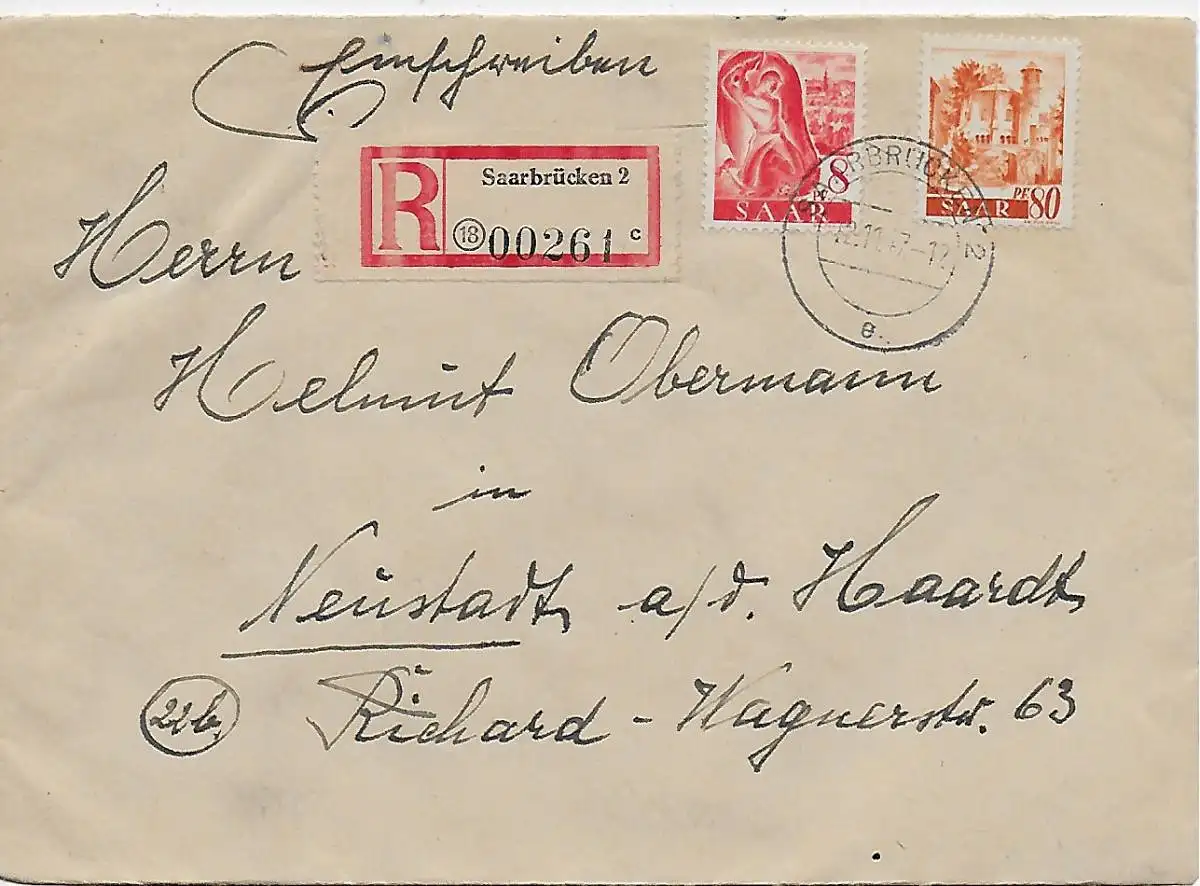 Einschreiben
R Saarbrücken 2
18 00261 c
8
SAAR
PF. 80
SAAR
SAARBRÜCKEN 2
12.11.47-12
e
Herrn
Helmut Obermann
in
Neustadt a/d. Haardt
22b
Richard-Wagnerstr. 63